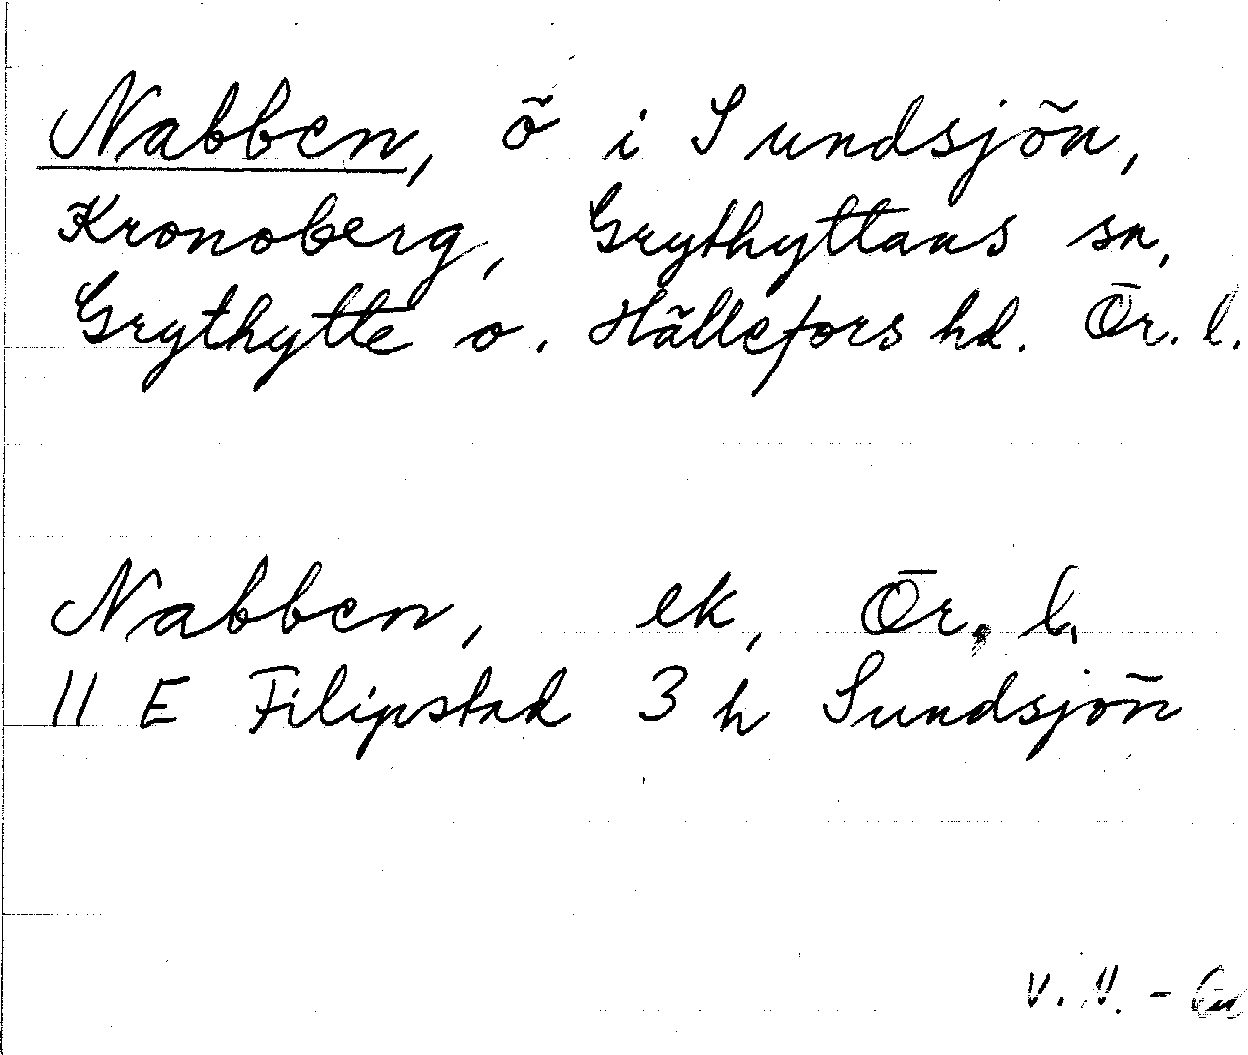 Nabben, ö i Sundsjön,
Kronoberg, Grythyttans sn,
Grythytte o. Hällefors hd. Ör. l.
Nabben, ek, Ör. l.
11 E Filipstad 3 h Sundsjön
V. N. -